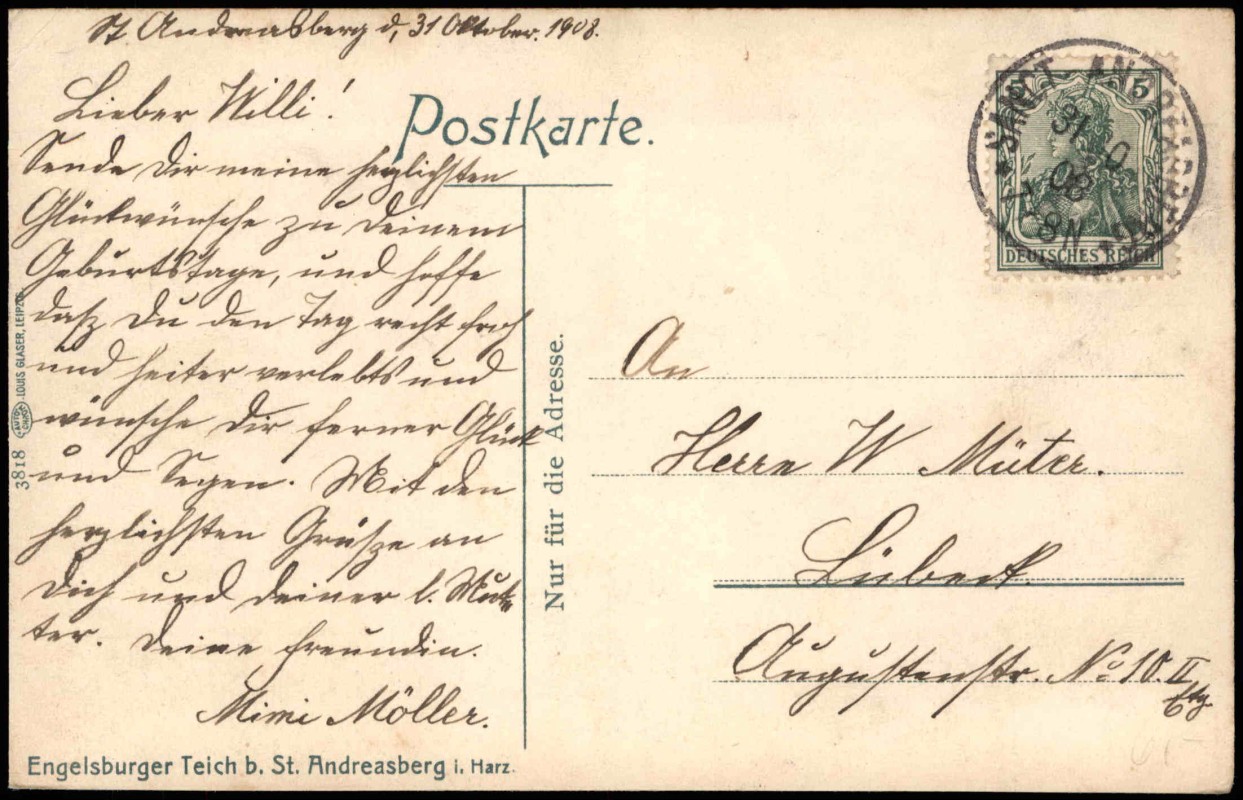 St. Andreasberg d, 31 Oktober. 1908.
Lieber Willi!
Sende Dir meine herzlichsten
Glückwünsche zu Deinem
Geburtstage, und hoffe
daß Du den Tag recht froh
und heiter verlebts und
wünsche Dir ferner Glück
und Segen. Mit den
herzlichsten Grüßen an
Dich und Deiner l. Mut-
ter. Deine Freundin.
Mimi Möller.
Engelsburger Teich b. St. Andreasberg i. Harz.
3818 AUTO-CHROM LOUIS GLASER, LEIPZIG.
Postkarte.
Nur für die Adresse.
5 5
DEUTSCHES REICH
* SANCT ANDREASBERG *
31 10
08
7-8N
An
Herrn W Müter.
Lübeck.
Augustenstr. No 10. II
Etg.